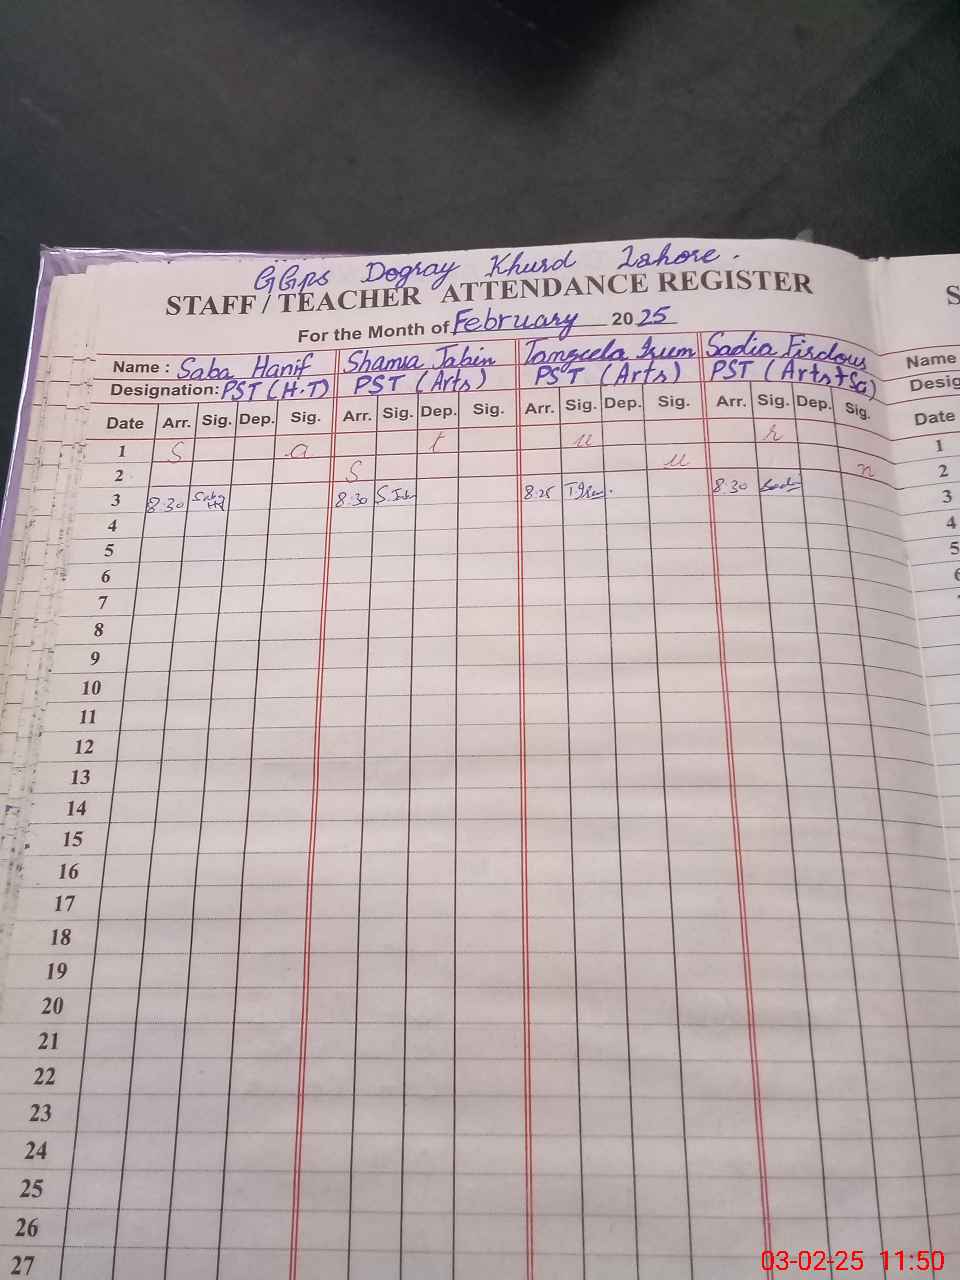 GGPS Dogray Khurd Lahore.
STAFF / TEACHER ATTENDANCE REGISTER
S
For the Month of February 2025
Name : Saba Hanif Shamsa Jabin Tanzeela Irum Sadia Firdous Name
Designation: PST (H.T) PST (Arts) PST (Arts) PST (Arts + Sc) Desig
Date Arr. Sig. Dep. Sig. Arr. Sig. Dep. Sig. Arr. Sig. Dep. Sig. Arr. Sig. Dep. Sig. Date
1 S a t u r 1
2 S u n 2
3 8:30 Saba 8:30 S. Jabin 8:25 T. Irum. 8:30 3
4 4
5 5
6 6
7
8
9
10
11
12
13
14
15
16
17
18
19
20
21
22
23
24
25
26
27
03-02-25 11:50